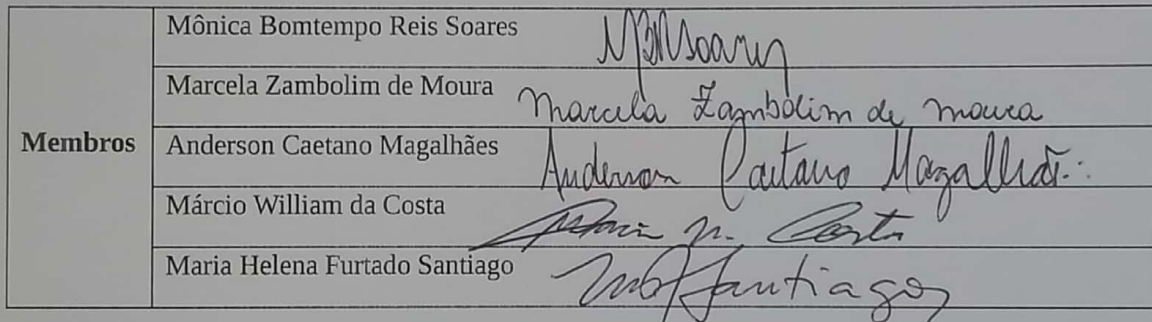 Mônica Bomtempo Reis Soares MBRSoares
Marcela Zambolim de Moura Marcela Zambolim de Moura
Membros Anderson Caetano Magalhães Anderson Caetano Magalhães
Márcio William da Costa Márcio W. Costa
Maria Helena Furtado Santiago MHFSantiago